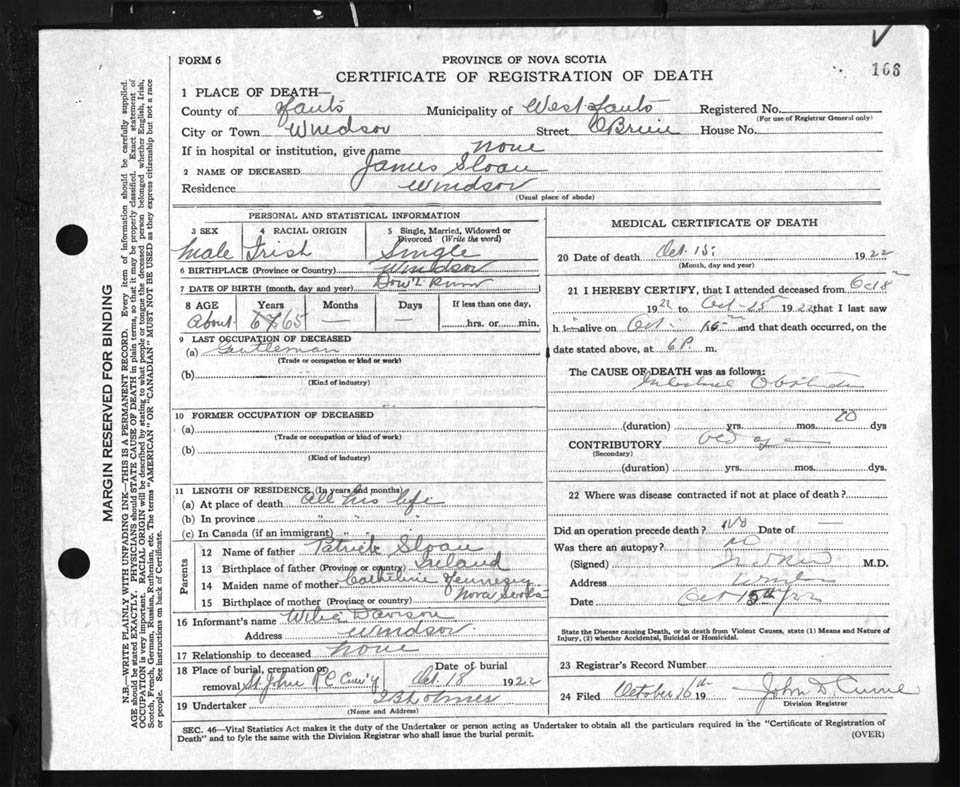 FORM 6
PROVINCE OF NOVA SCOTIA
CERTIFICATE OF REGISTRATION OF DEATH
168
1 PLACE OF DEATH—
County of Hants Municipality of West Hants Registered No.
(For use of Registrar General only)
City or Town Windsor Street O'Brien House No.
If in hospital or institution, give name none
2 NAME OF DECEASED James Sloan
Residence Windsor
(Usual place of abode)
PERSONAL AND STATISTICAL INFORMATION
3 SEX Male
4 RACIAL ORIGIN Irish
5 Single, Married, Widowed or Divorced (Write the word) Single
6 BIRTHPLACE (Province or Country) Windsor
7 DATE OF BIRTH (month, day and year) Don't Know
8 AGE Years Months Days If less than one day,
About 65 — — hrs. or min.
9 LAST OCCUPATION OF DECEASED
(a) Gentleman
(Trade or occupation or kind or work)
(b)
(Kind of industry)
10 FORMER OCCUPATION OF DECEASED
(a)
(Trade or occupation or kind of work)
(b)
(Kind of industry)
11 LENGTH OF RESIDENCE (In years and months)
(a) At place of death all his life
(b) In province " "
(c) In Canada (if an immigrant) " "
Parents
12 Name of father Patrick Sloan
13 Birthplace of father (Province or country) Ireland
14 Maiden name of mother Catherine
15 Birthplace of mother (Province or country) Nova Scotia
16 Informant's name Davison
Address Windsor
17 Relationship to deceased none
18 Place of burial, cremation or removal St John R C Cem'y Date of burial Oct. 18 1922
19 Undertaker
(Name and Address)
MEDICAL CERTIFICATE OF DEATH
20 Date of death Oct. 15 1922
(Month, day and year)
21 I HEREBY CERTIFY, that I attended deceased from Oct 8
1922 to Oct 15 1922 that I last saw
h im alive on Oct 15 and that death occurred, on the
date stated above, at 6 P. m.
The CAUSE OF DEATH was as follows:
Intestinal Obstruction
(duration) yrs. mos. 20 dys
CONTRIBUTORY old age
(Secondary)
(duration) yrs. mos. dys.
22 Where was disease contracted if not at place of death?
Did an operation precede death? No Date of —
Was there an autopsy? no
(Signed) M.D.
Address Windsor
Date Oct 15th/22
State the Disease causing Death, or in death from Violent Causes, state (1) Means and Nature of
Injury, (2) whether Accidental, Suicidal or Homicidal.
23 Registrar's Record Number
24 Filed October 16th 19 John D
Division Registrar
SEC. 46—Vital Statistics Act makes it the duty of the Undertaker or person acting as Undertaker to obtain all the particulars required in the "Certificate of Registration of
Death" and to fyle the same with the Division Registrar who shall issue the burial permit.
(OVER)
MARGIN RESERVED FOR BINDING
N.B.—WRITE PLAINLY WITH UNFADING INK—THIS IS A PERMANENT RECORD. Every item of information should be carefully supplied.
AGE should be stated EXACTLY. PHYSICIANS should STATE CAUSE OF DEATH in plain terms, so that it may be properly classified. Exact statement of
OCCUPATION is very important. RACIAL ORIGIN will be described by stating to what people or tongue the deceased person belonged whether English, Irish,
Scotch, French, German, Russian, Ruthenian, etc. The terms "AMERICAN" OR "CANADIAN" MUST NOT BE USED as they express citizenship but not a race
or people. See instructions on back of Certificate.